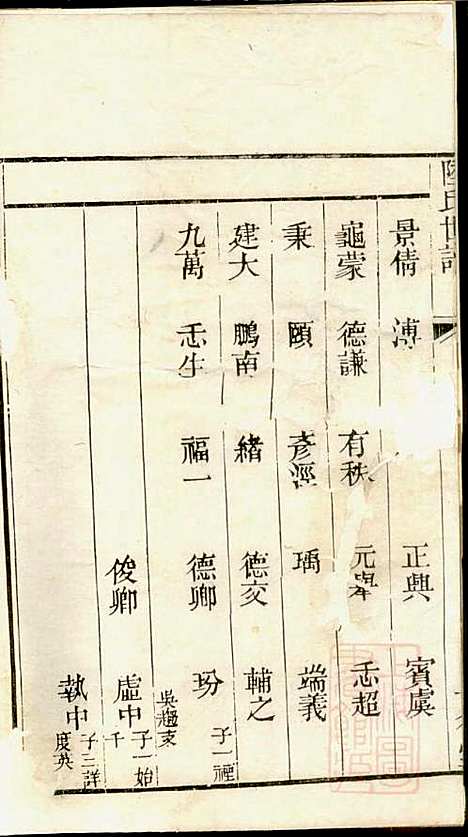 陸氏世譜
景倩 溥 正興 賓虞
龜蒙 德謙 有秩 元皞 志超
秉 頤 彥涇 瑀 端義
建大 鵬南 緒 德交 輔之
九萬 志生 福一 德卿 玢 子一禋
吳趨支
俊卿 虛中 子一始千
執中 子三詳度英